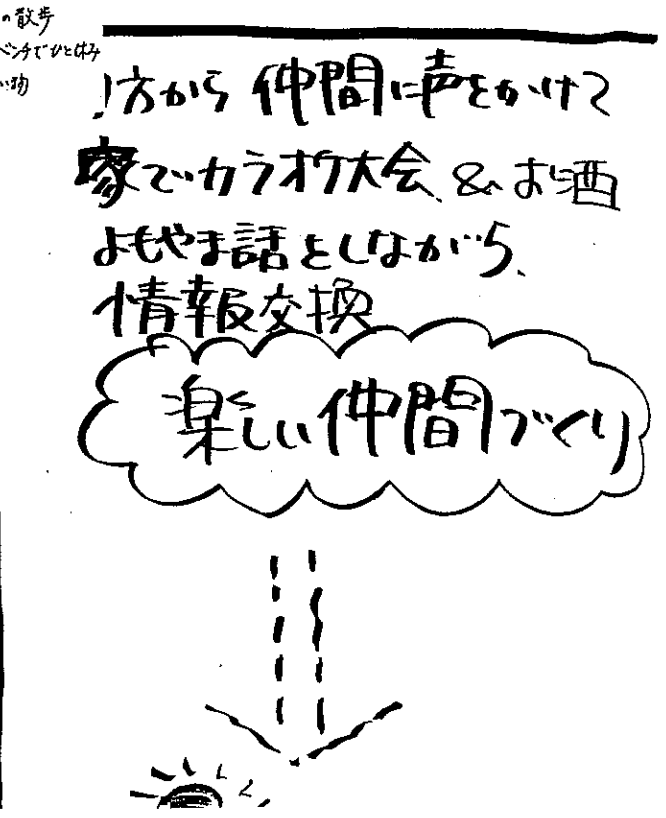 の散歩
ベンチでひと休み
い物
方から 仲間に声をかけて
家でカラオケ大会、&お酒
よもやま話をしながら、
情報交換
楽しい仲間づくり